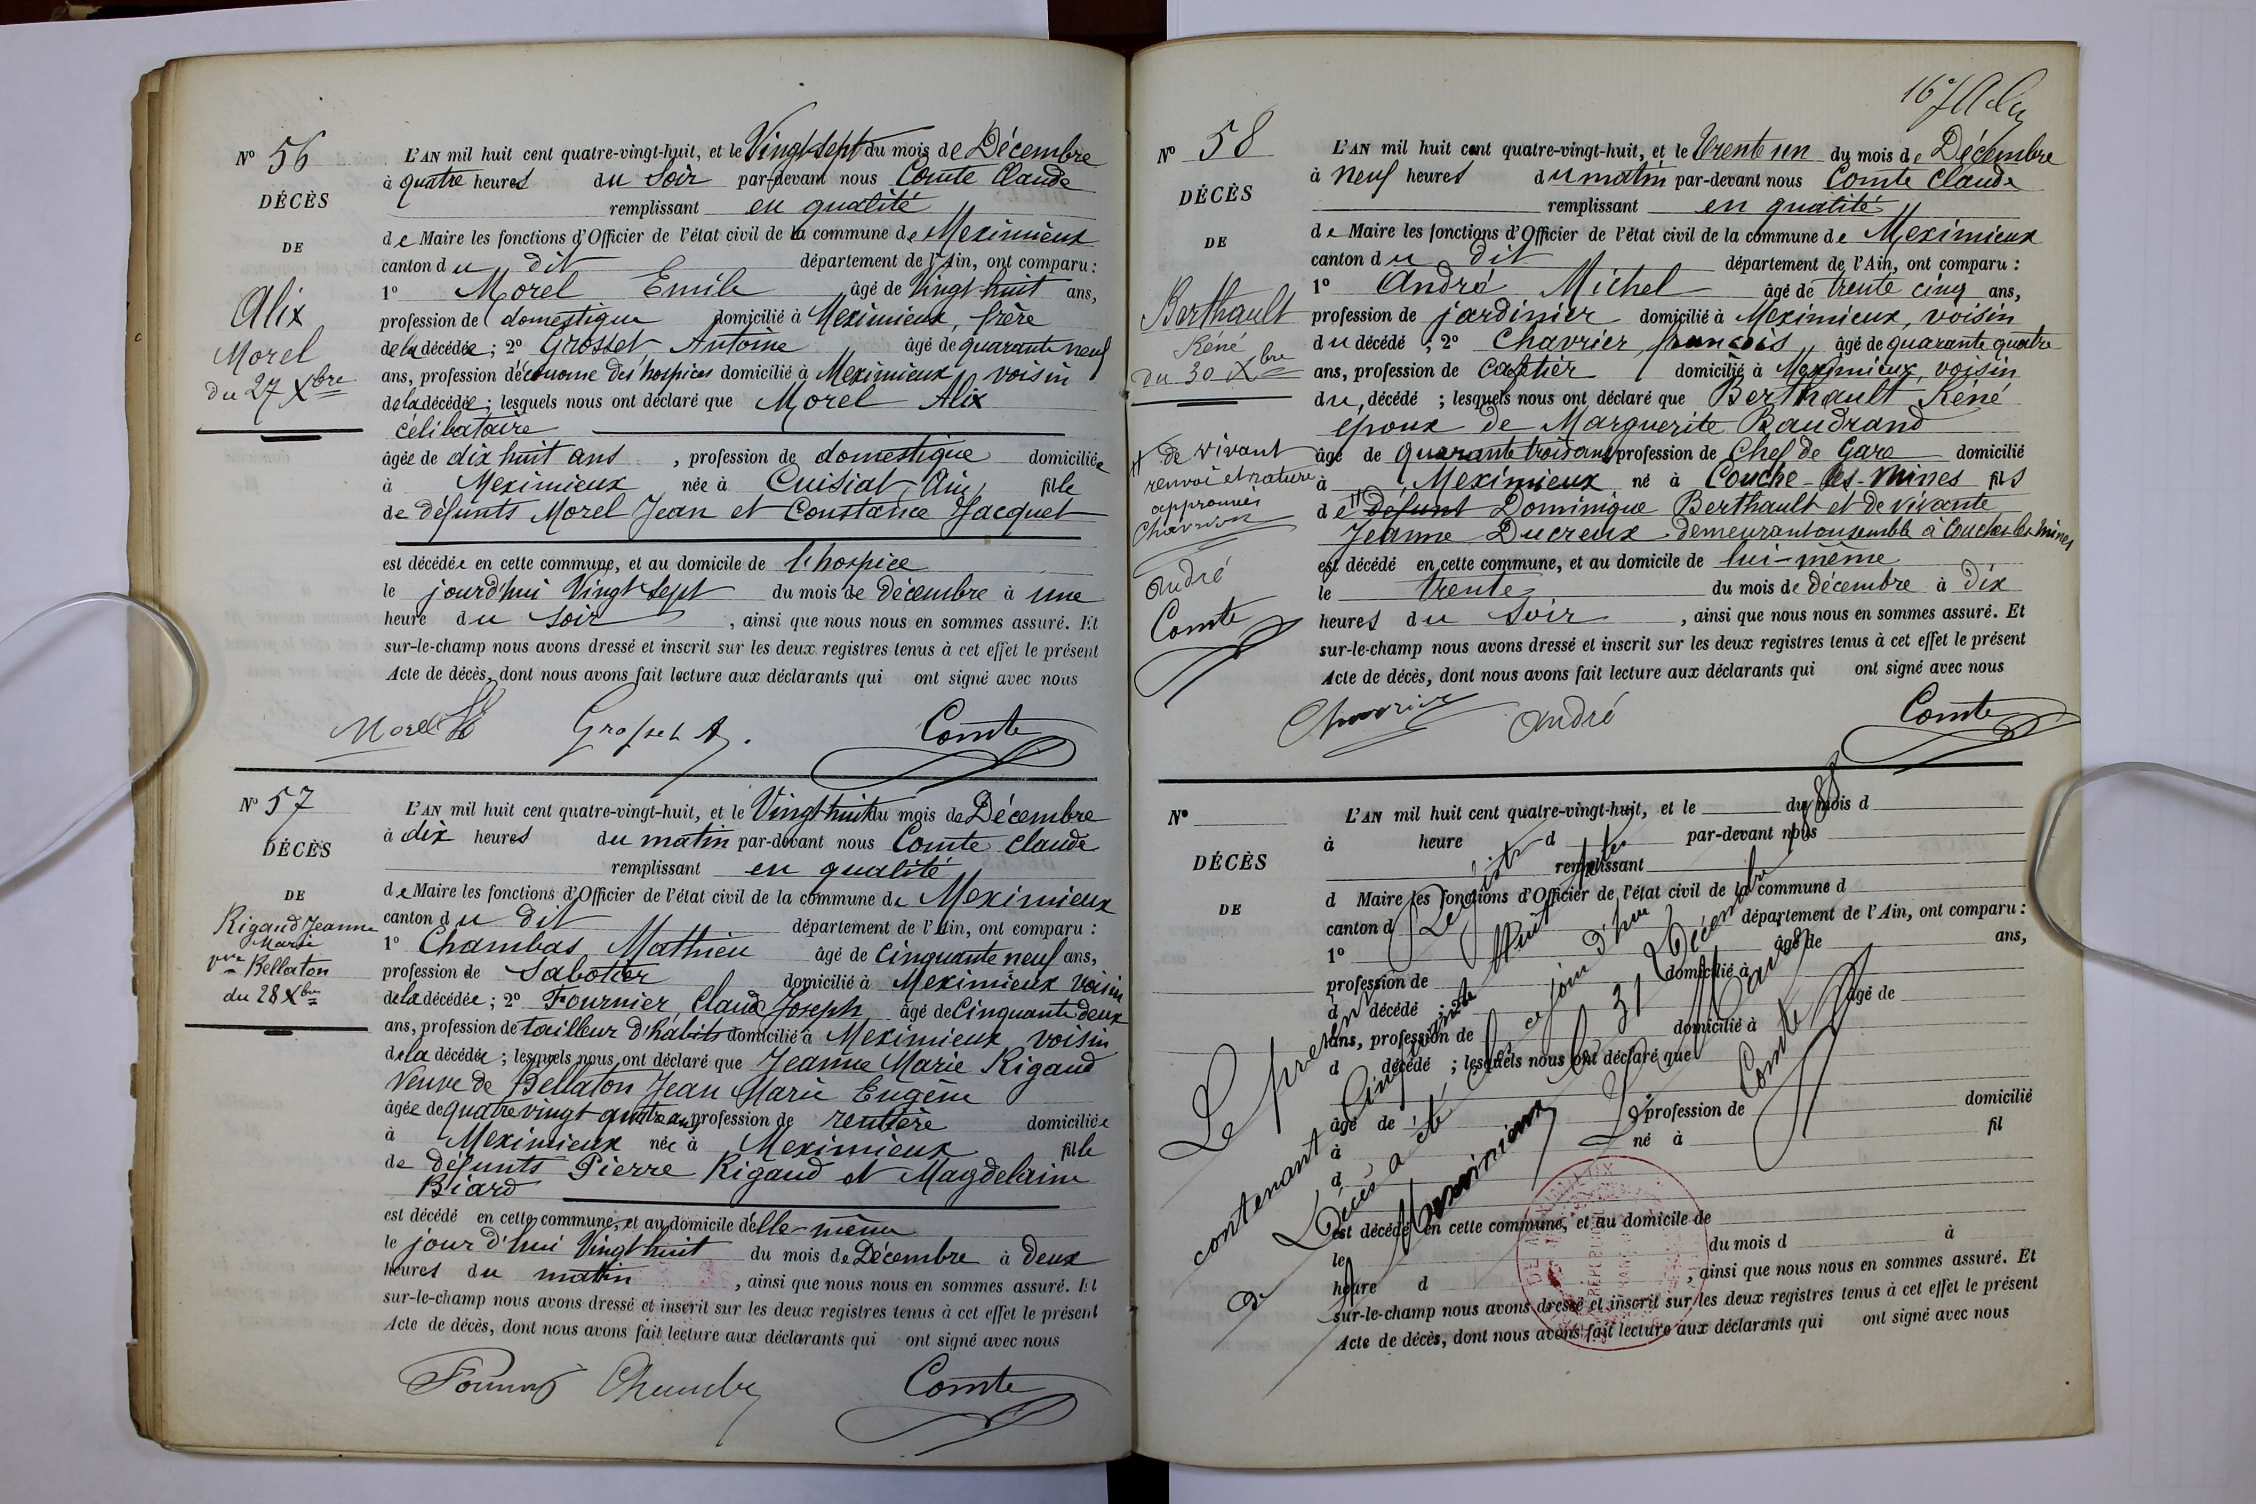 N° 56
DÉCÈS
DE
Alix
Morel
du 27 Xbre
L'AN mil huit cent quatre-vingt-huit, et le Vingt sept du mois de Décembre
à quatre heures du soir par-devant nous Comte Claude
remplissant en qualité
de Maire les fonctions d'Officier de l'état civil de la commune de Meximieux
canton du dit département de l'Ain, ont comparu :
1° Morel Emile âgé de Vingt huit ans,
profession de domestique domicilié à Meximieux, frère
de la décédée ; 2° Grosset Antoine âgé de quarante neuf
ans, profession d'économe des hospices domicilié à Meximieux voisin
de la décédée ; lesquels nous ont déclaré que Morel Alix
célibataire
âgée de dix huit ans , profession de domestique domiciliée
à Meximieux née à Cuisiat, Ain, fille
de défunts Morel Jean et Constance Jacquet
est décédée en cette commune, et au domicile de l'hospice
le jourd'hui Vingt sept du mois de décembre à une
heure du soir , ainsi que nous nous en sommes assuré. Et
sur-le-champ nous avons dressé et inscrit sur les deux registres tenus à cet effet le présent
Acte de décès, dont nous avons fait lecture aux déclarants qui ont signé avec nous
Morel Grosset A. Comte
N° 57
DÉCÈS
DE
Rigaud Jeanne
Marie
vve Bellaton
du 28 Xbre
L'AN mil huit cent quatre-vingt-huit, et le Vingt huit du mois de Décembre
à dix heures du matin par-devant nous Comte Claude
remplissant en qualité
de Maire les fonctions d'Officier de l'état civil de la commune de Meximieux
canton du dit département de l'Ain, ont comparu :
1° Chambas Mathieu âgé de Cinquante neuf ans,
profession de Sabotier domicilié à Meximieux voisin
de la décédée ; 2° Fournier Claude Joseph âgé de Cinquante deux
ans, profession de tailleur d'habits domicilié à Meximieux voisin
de la décédée ; lesquels nous ont déclaré que Jeanne Marie Rigaud
Veuve de Bellaton Jean Marie Eugène
âgée de quatre vingt quatre ans profession de rentière domiciliée
à Meximieux née à Meximieux fille
de défunts Pierre Rigaud et Magdelaine
Biard
est décédé en cette commune, et au domicile d'elle-même
le jourd'hui Vingt huit du mois de Décembre à deux
heures du matin , ainsi que nous nous en sommes assuré. Et
sur-le-champ nous avons dressé et inscrit sur les deux registres tenus à cet effet le présent
Acte de décès, dont nous avons fait lecture aux déclarants qui ont signé avec nous
Comte
N° 58
DÉCÈS
DE
Berthault
Réné
du 30 Xbre
de vivant
renvoi et rature
approuvés
Chavrier
andré
Comte
L'AN mil huit cent quatre-vingt-huit, et le Trente un du mois de Décembre
à Neuf heures du matin par-devant nous Comte Claude
remplissant en qualité
de Maire les fonctions d'Officier de l'état civil de la commune de Meximieux
canton du dit département de l'Ain, ont comparu :
1° André Michel âgé de trente cinq ans,
profession de jardinier domicilié à Meximieux, voisin
du décédé ; 2° Chavrier françois âgé de quarante quatre
ans, profession de cafetier domicilié à Meximieux, voisin
du décédé ; lesquels nous ont déclaré que Berthault Réné
époux de Marguerite Baudrand
âgé de quarante trois ans profession de Chef de Gare domicilié
à Meximieux né à Couche-les-Mines fils
de défunt Dominique Berthault et de vivante
Jeanne Ducreux demeurant ensemble à Couches les Mines
est décédé en cette commune, et au domicile de lui-même
le trente du mois de décembre à dix
heures du soir , ainsi que nous nous en sommes assuré. Et
sur-le-champ nous avons dressé et inscrit sur les deux registres tenus à cet effet le présent
Acte de décès, dont nous avons fait lecture aux déclarants qui ont signé avec nous
Chavrier andré Comte
N°
DÉCÈS
DE
L'AN mil huit cent quatre-vingt-huit, et le du mois d
à heure d par-devant nous
remplissant
d Maire les fonctions d'Officier de l'état civil de la commune d
canton d département de l'Ain, ont comparu :
1° âgé de ans,
profession de domicilié à
d décédé ; 2° âgé de
ans, profession de domicilié à
d décédé ; lesquels nous ont déclaré que
âgé de , profession de domicilié
à né à fil
d
est décédé en cette commune, et au domicile de
le du mois d à
heure d , ainsi que nous nous en sommes assuré. Et
sur-le-champ nous avons dressé et inscrit sur les deux registres tenus à cet effet le présent
Acte de décès, dont nous avons fait lecture aux déclarants qui ont signé avec nous
Le présent Registre
contenant Cinquante Huit Actes
de Décès a été clos ce jourd'hui 31 Décembre 1888
Meximieux Le Maire
Comte